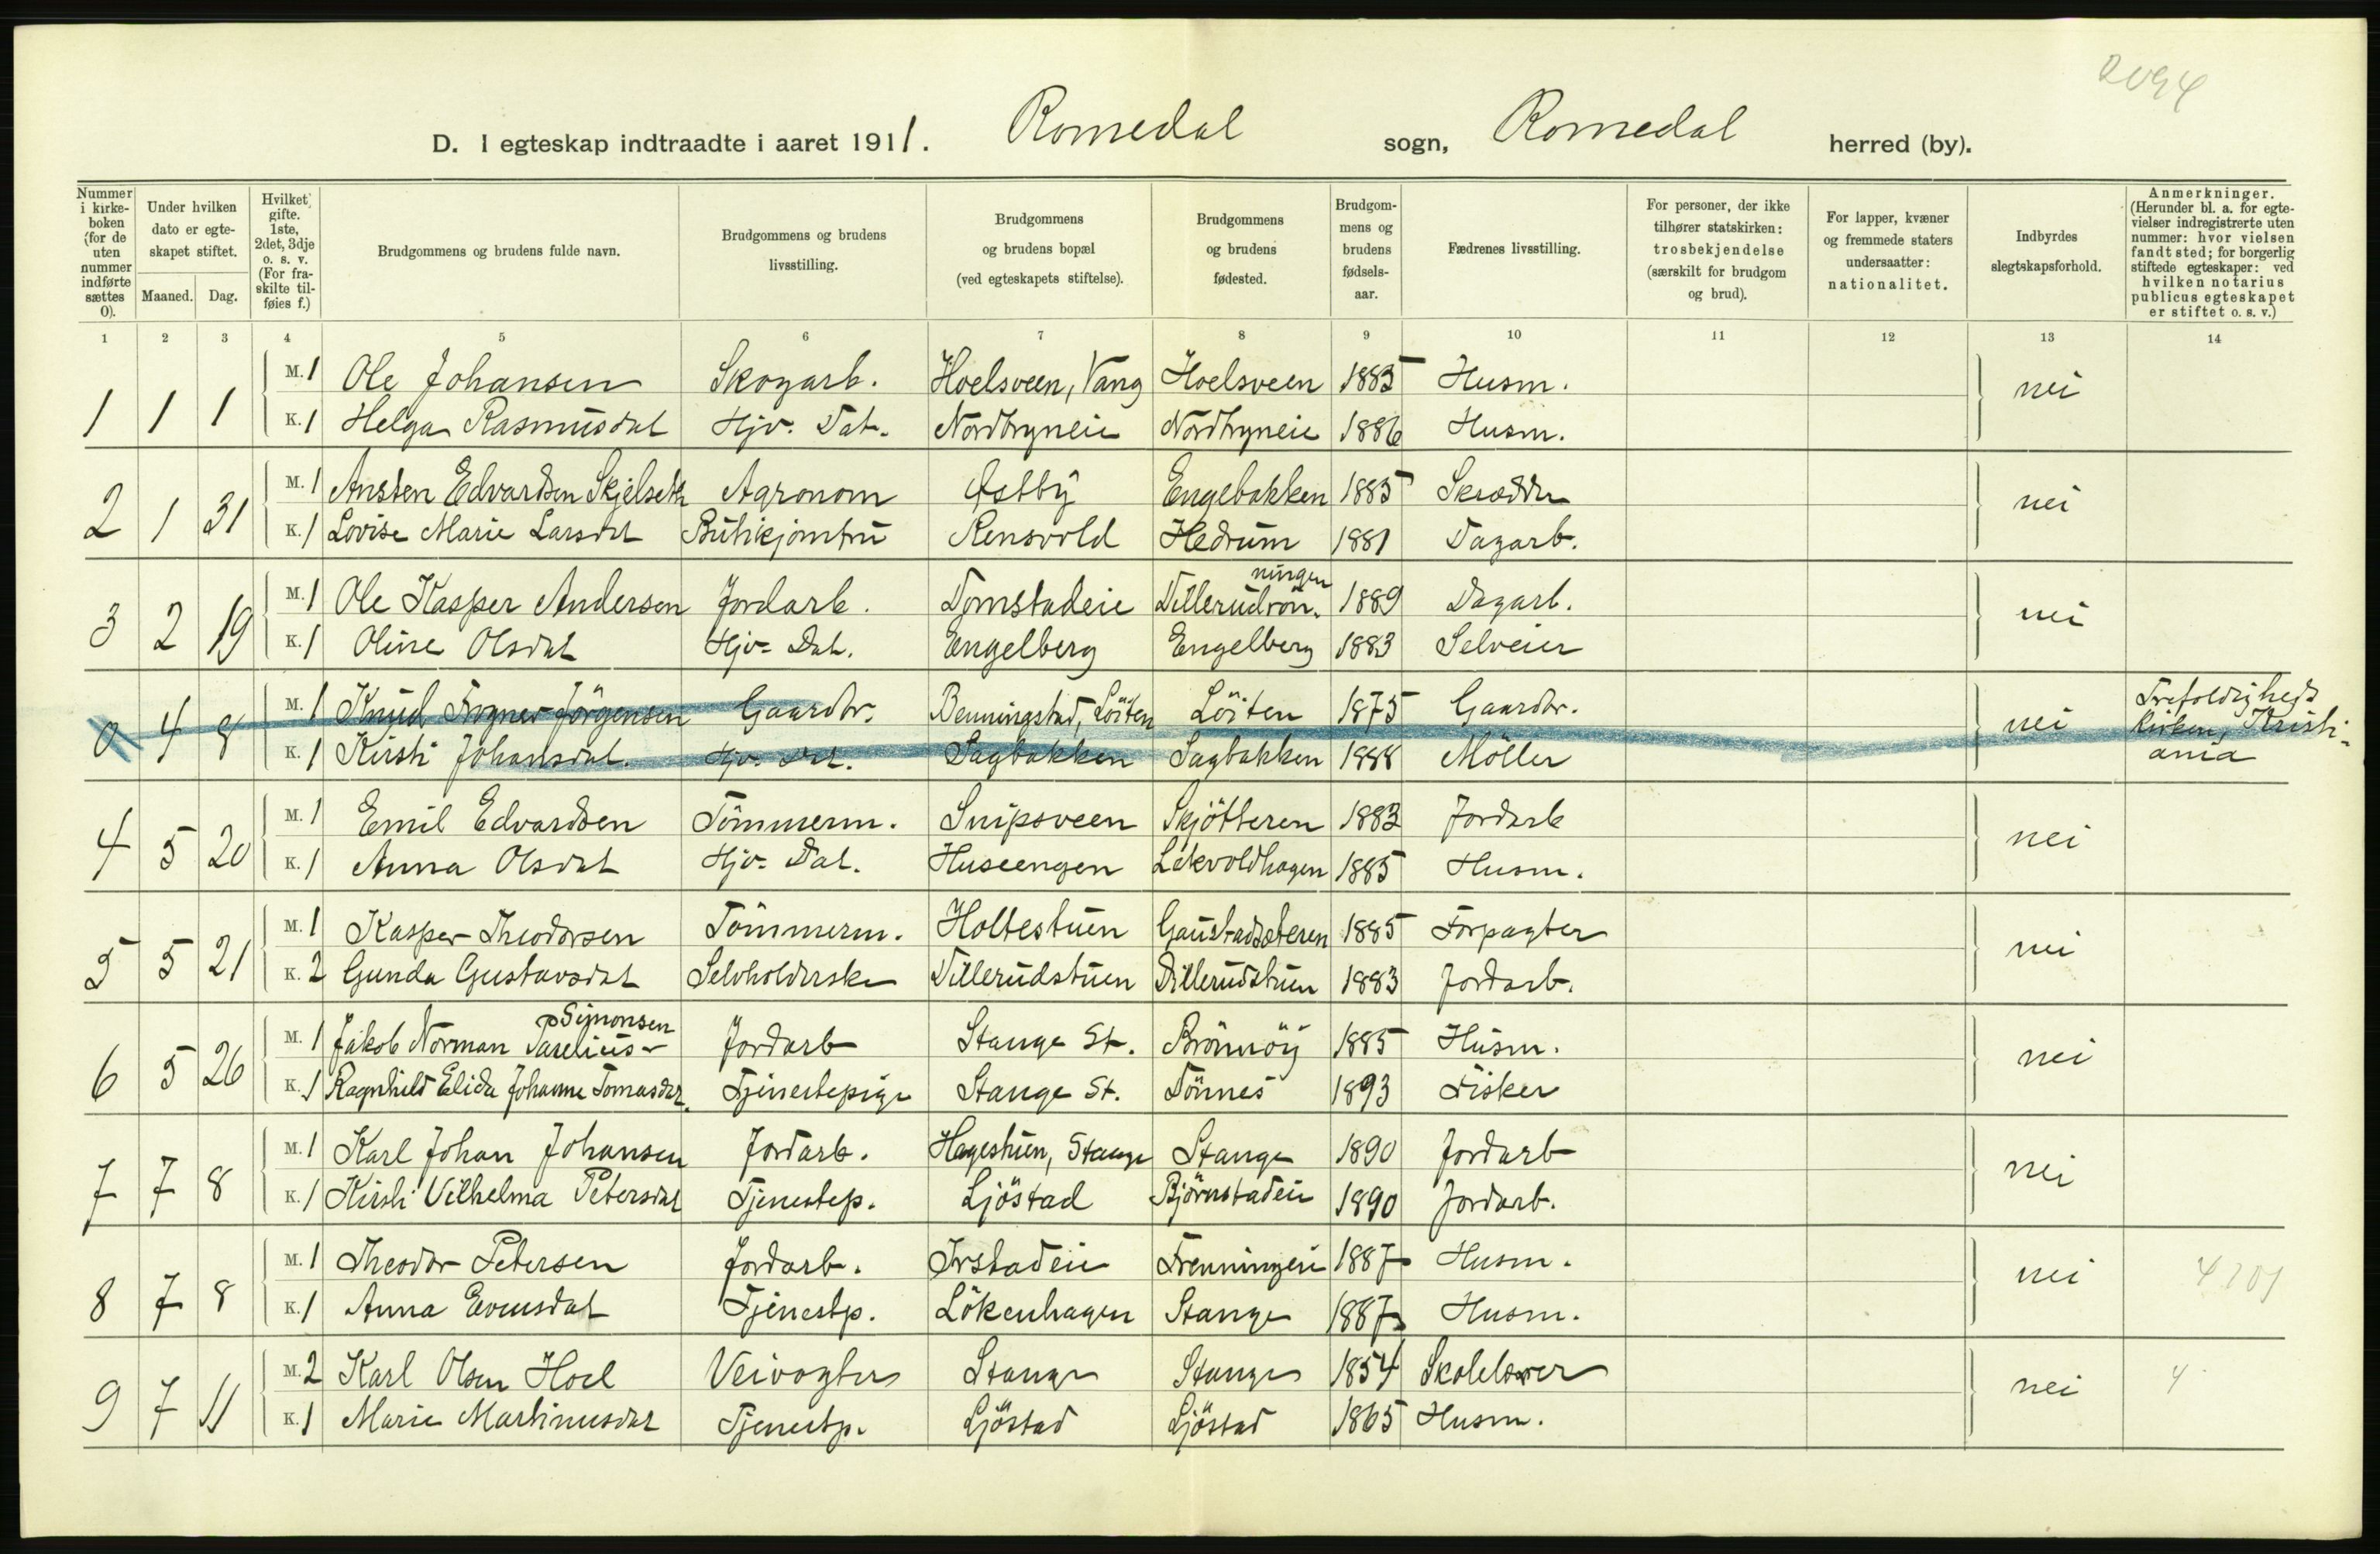 2094
D. I egteskap indtraadte i aaret 1911. Romedal sogn, Romedal herred (by).
Nummer i kirke-boken (for de uten nummer indførte sættes 0). | Under hvilken dato er egte-skapet stiftet. Maaned. Dag. | Hvilket gifte. 1ste, 2det, 3dje o. s. v. (For fra-skilte til-føies f.) | Brudgommens og brudens fulde navn. | Brudgommens og brudens livsstilling. | Brudgommens og brudens bopæl (ved egteskapets stiftelse). | Brudgommens og brudens fødested. | Brudgom-mens og brudens fødsels-aar. | Fædrenes livsstilling. | For personer, der ikke tilhører statskirken: trosbekjendelse (særskilt for brudgom og brud). | For lapper, kvæner og fremmede staters undersaatter: nationalitet. | Indbyrdes slegtskapsforhold. | Anmerkninger. (Herunder bl. a. for egte-vielser indregistrerte uten nummer: hvor vielsen fandt sted; for borgerlig stiftede egteskaper: ved hvilken notarius publicus egteskapet er stiftet o. s. v.)
1 2 3 4 5 6 7 8 9 10 11 12 13 14
1 1 1 M. 1 Ole Johansen Skogarb. Hoelsveen, Vang Hoelsveen 1885 Husm. nei
K. 1 Helga Rasmusdat Hjv. Dat. Nordbyneie Nordbyneie 1886 Husm.
2 1 31 M. 1 Ansten Edvardsen Skjelseth Agronom Østby Engebakken 1885 Skrædder nei
K. 1 Lovise Marie Larsdat Butikjomfru Rensvold Hedrum 1881 Dagarb.
3 2 19 M. 1 Ole Kasper Andersen Jordarb. Tomstadeie Dillerudrön.ningen 1889 Dagarb. nei
K. 1 Oline Olsdat Hjv. Dat. Engelberg Engelberg 1883 Selveier
0 4 8 M. 1 Knud Frogner Jörgensen Gaardbr. Benningstad, Löiten Löiten 1875 Gaardbr. nei Trefoldigheds
kirken, Kristi-
K. 1 Kirsti Johansdat. Hjv. Dat. Sagbakken Sagbakken 1888 Möller ania
4 5 20 M. 1 Emil Edvardsen Tömmerm. Snipsveen Skjötteren 1883 Jordarb nei
K. 1 Anna Olsdat Hjv. Dat. Huseengen Lökvoldhagen 1885 Husm.
5 5 21 M. 1 Kasper Theodorsen Tömmerm. Holtestuen Gaustadsæteren 1885 Forpagter nei
K. 2 Gunda Gustavsdat Selvholderske Dillerudstuen Dillerudstuen 1883 Jordarb.
6 5 26 M. 1 Jakob Norman Parelius Simonsen Jordarb Stange St. Brönnöy 1885 Husm. nei
K. 1 Ragnhild Elida Johanne Tomasdat. Tjenestepige Stange St. Dönnes 1893 Fisker
7 7 8 M. 1 Karl Johan Johansen Jordarb. Hagestuen, Stange Stange 1890 Jordarb nei
K. 1 Kirsti Vilhelma Petersdat Tjenestep. Ljöstad Björnstadeie 1890 Jordarb.
8 7 8 M. 1 Theodor Petersen Jordarb. Irstadeie Frenningeie 1887 Husm. nei
K. 1 Anna Evensdat Tjenestp. Lökenhagen Stange 1887 Husm.
9 7 11 M. 2 Karl Olsen Hoel Veivogter Stange Stange 1854 Skolelærer nei 4
K. 1 Marie Martinusdat Tjenestp. Ljöstad Ljöstad 1865 Husm.